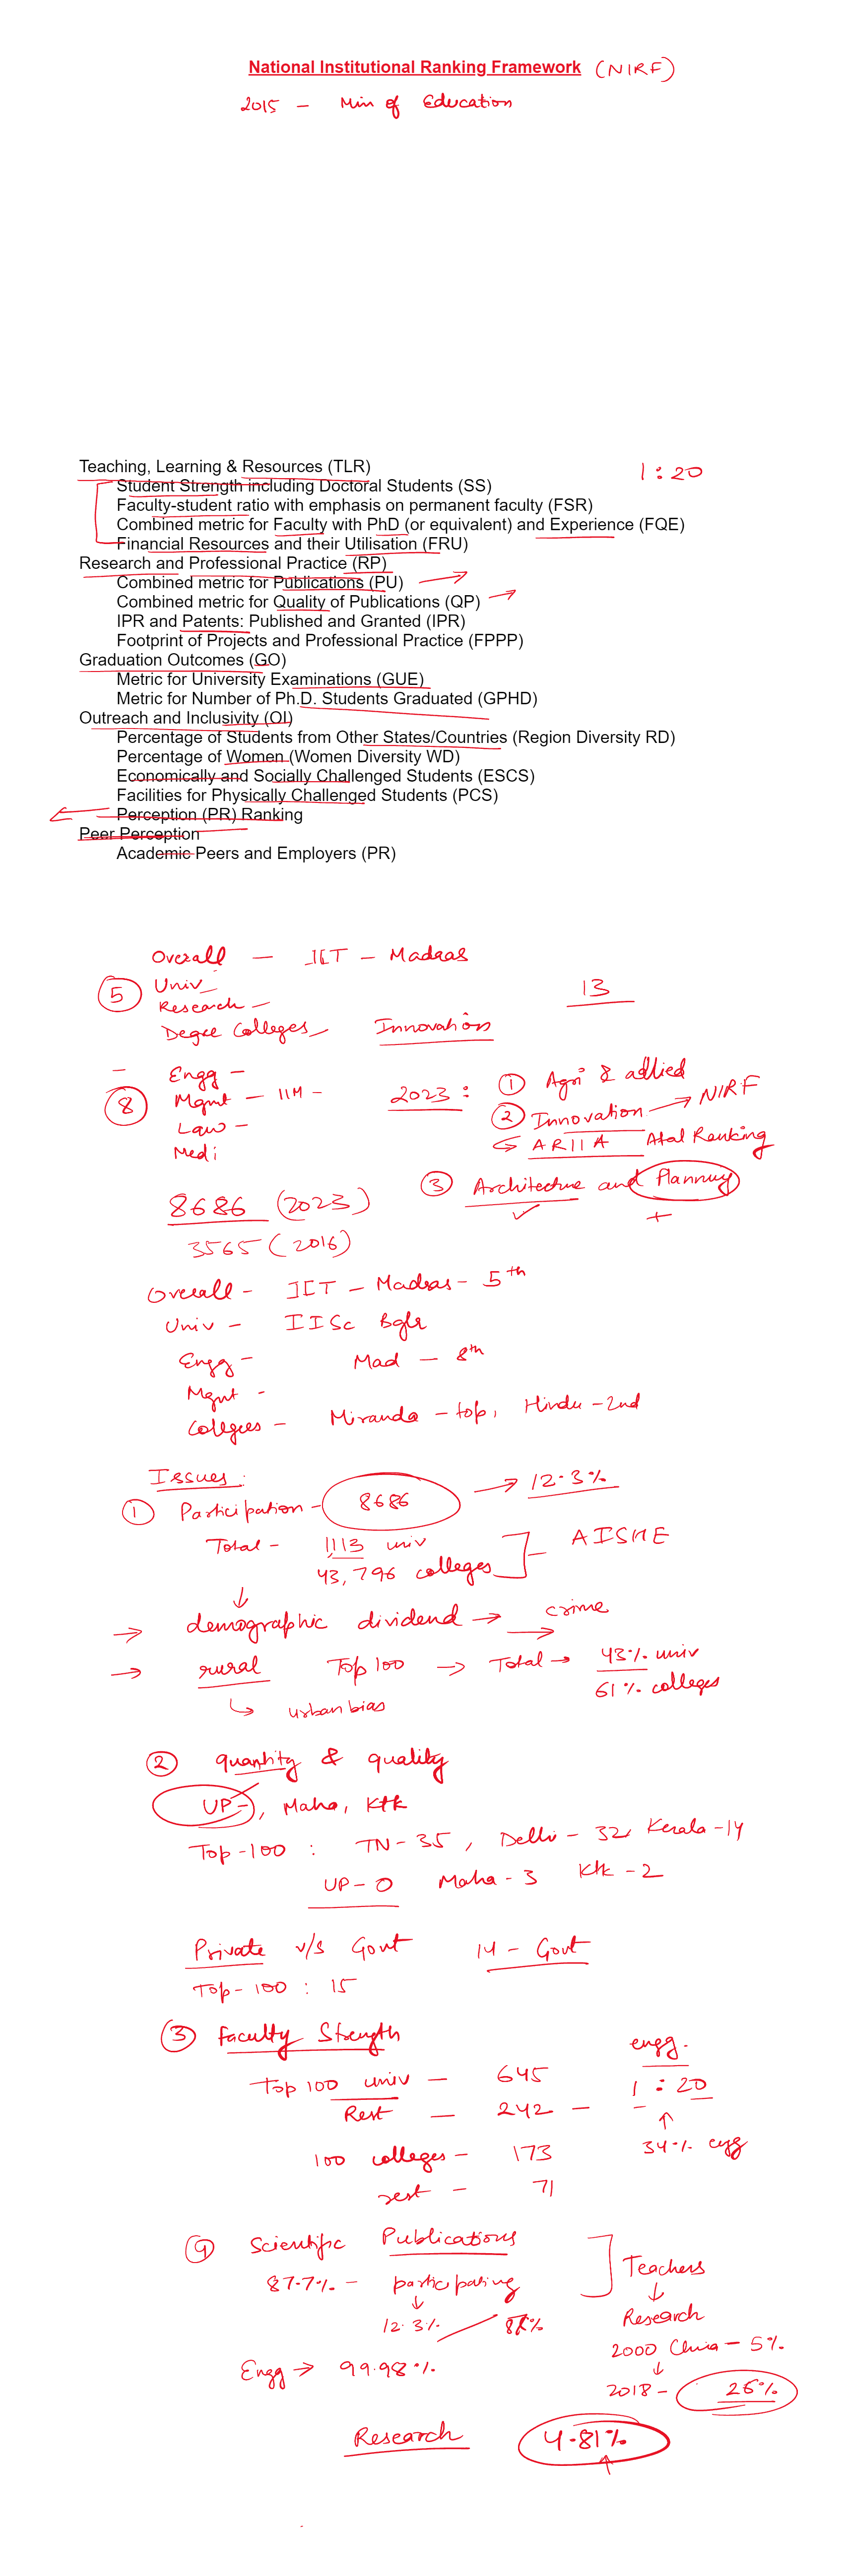 National Institutional Ranking Framework (NIRF)
2015 – Min of Education
Teaching, Learning & Resources (TLR)
1 : 20
Student Strength including Doctoral Students (SS)
Faculty-student ratio with emphasis on permanent faculty (FSR)
Combined metric for Faculty with PhD (or equivalent) and Experience (FQE)
Financial Resources and their Utilisation (FRU)
Research and Professional Practice (RP)
Combined metric for Publications (PU)
Combined metric for Quality of Publications (QP)
IPR and Patents: Published and Granted (IPR)
Footprint of Projects and Professional Practice (FPPP)
Graduation Outcomes (GO)
Metric for University Examinations (GUE)
Metric for Number of Ph.D. Students Graduated (GPHD)
Outreach and Inclusivity (OI)
Percentage of Students from Other States/Countries (Region Diversity RD)
Percentage of Women (Women Diversity WD)
Economically and Socially Challenged Students (ESCS)
Facilities for Physically Challenged Students (PCS)
Perception (PR) Ranking
Peer Perception
Academic Peers and Employers (PR)
Overall – IIT – Madras
5 Univ –
Research –
13
Degee Colleges – Innovation
– Engg –
8 Mgmt – IIM –
Law –
Medi
2023 : 1 Agri & allied
2 Innovation → NIRF
ARIIA Atal Ranking
3 Architecture and Planning
+
8686 (2023)
3565 (2016)
Overall – IIT – Madras – 5th
Univ – IISc Bglr
Engg – Mad – 8th
Mgmt –
Colleges – Miranda – top, Hindu – 2nd
Issues :
1 Participation – 8686 → 12.3%
Total – 1113 univ
43,796 colleges – AISHE
→ demographic dividend → crime
→ rural Top 100 → Total → 43% univ
61% colleges
↳ urban bias
2 quantity & quality
UP –, Maha, Ktk
Top-100 : TN – 35, Delhi – 32, Kerala – 14
UP – 0 Maha – 3 Ktk – 2
Private v/s Govt 14 – Govt
Top-100 : 15
3 Faculty Strength
engg.
Top 100 univ – 645
1 : 20
Rest – 242 –
34% engg
100 colleges – 173
rest – 71
4 Scientific Publications
87.7% – participating
12.3%
Teachers
Research
2000 China – 5%
2018 – 26%
Engg → 99.98%
Research 4.81%